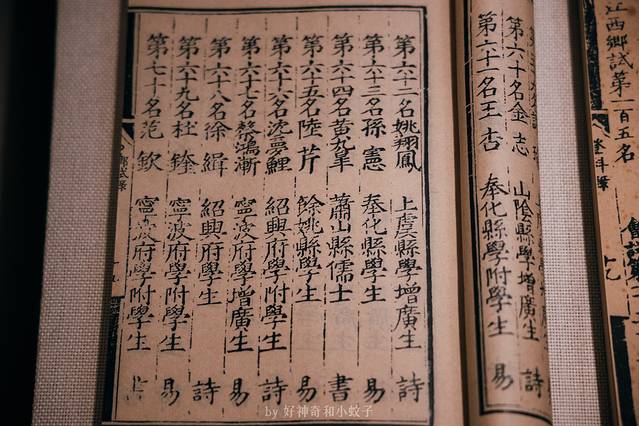 江西鄉試第一百五名
第六十名金志 山陰縣學增廣生 詩
第六十一名王杏 奉化縣學附學生 易
第六十二名姚翔鳳 上虞縣學增廣生 詩
第六十三名孫憲 奉化縣學生 易
第六十四名黃九皋 蕭山縣儒士 書
第六十五名陸芹 餘姚縣學生 易
第六十六名沈夢鯉 紹興府學附學生 詩
第六十七名 鴻漸 寧波府學增廣生 易
第六十八名徐緝 紹興府學生 詩
第六十九名杜銓 寧波府學附學生 易
第七十名范欽 寧波府學附學生 書
by 好神奇和小蚊子